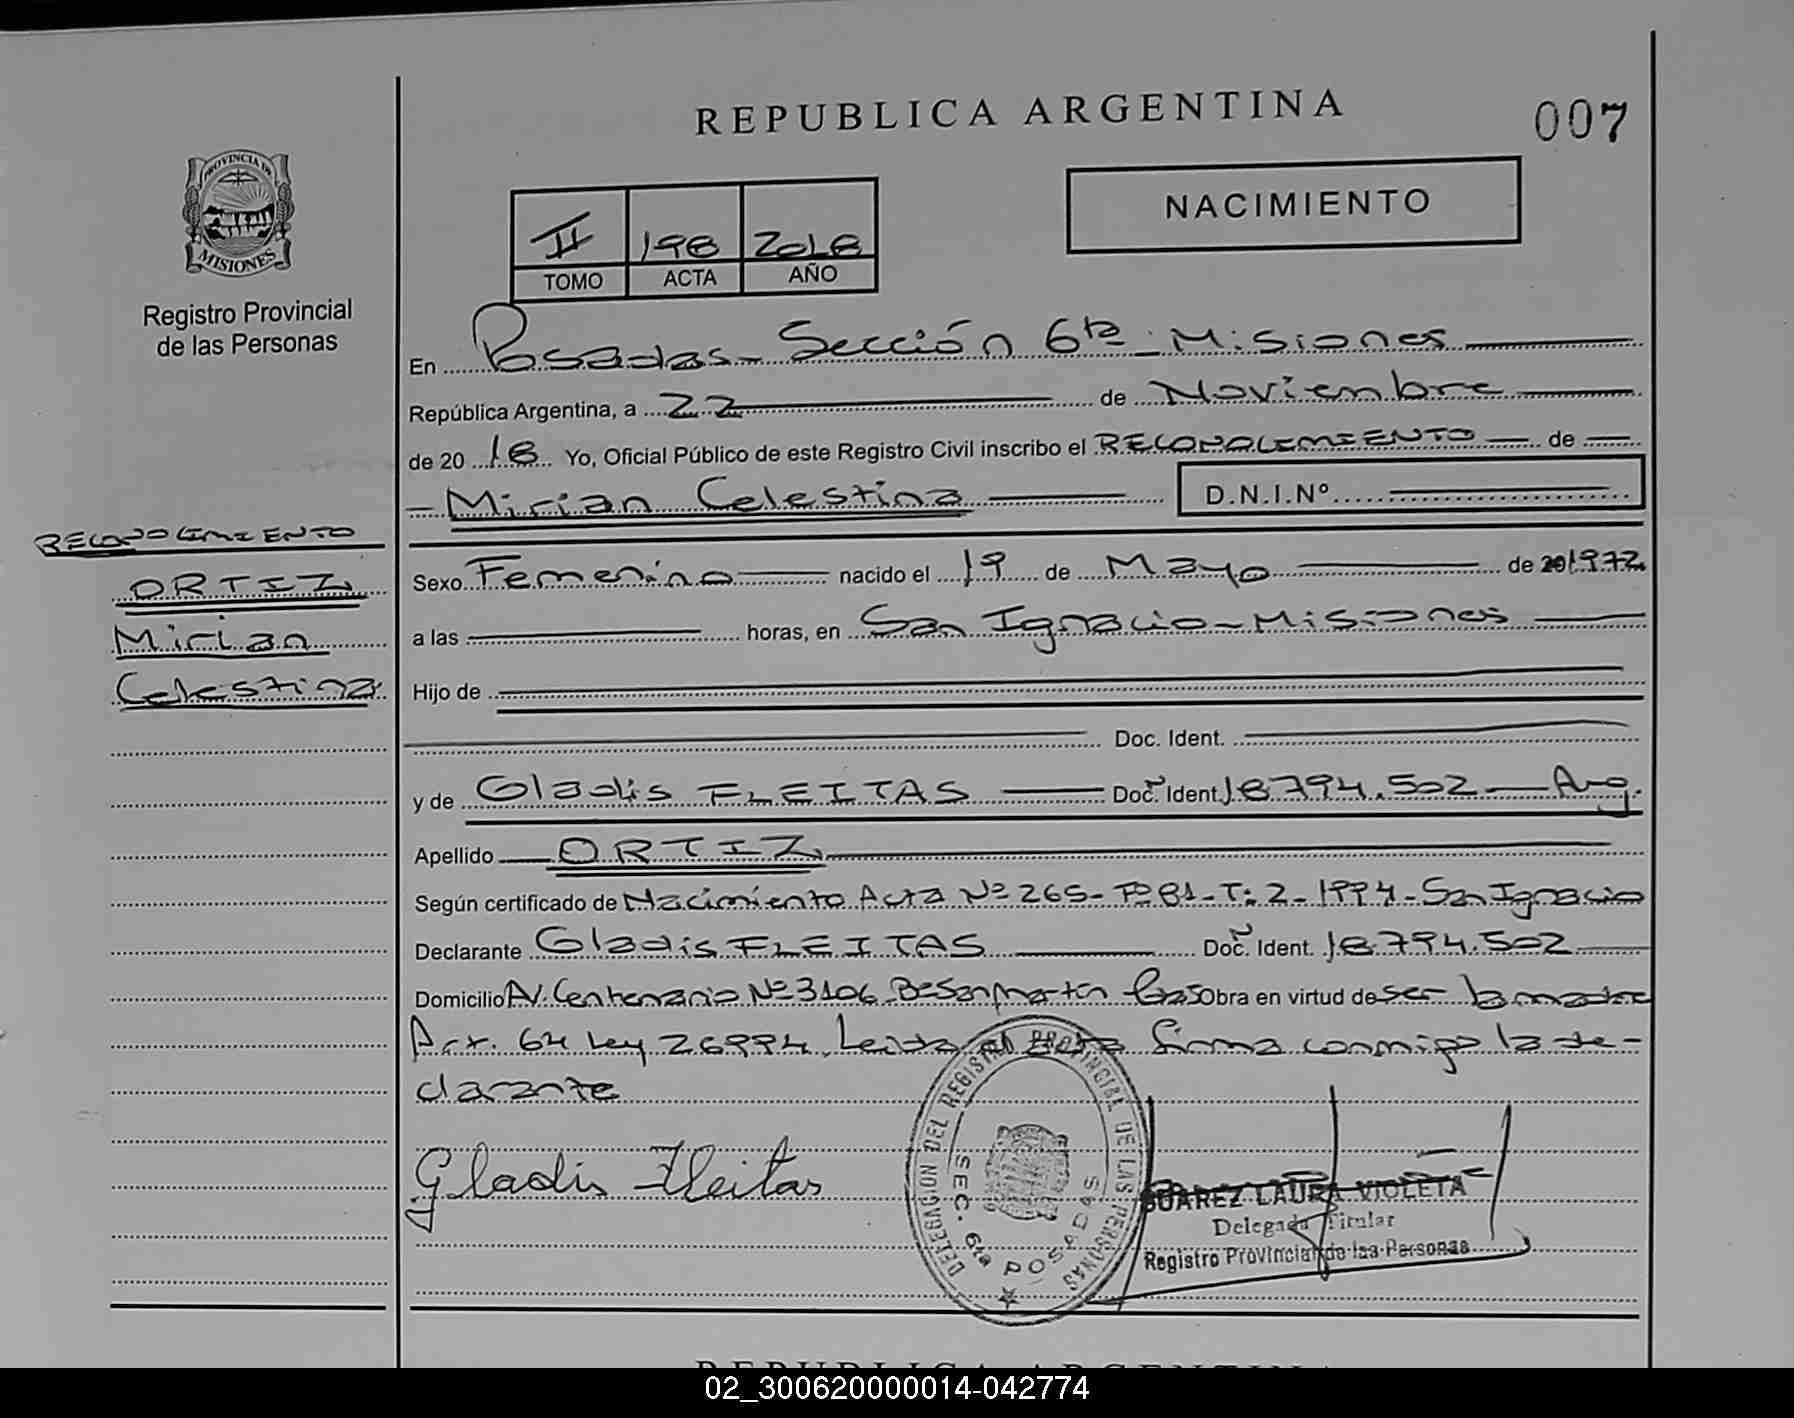 REPUBLICA ARGENTINA
007
NACIMIENTO
II 198 2018
TOMO ACTA AÑO
PROVINCIA DE
MISIONES
Registro Provincial
de las Personas
RECONOCIMIENTO
ORTIZ
Mirian
Celestina
En Posadas - Sección 6ta - Misiones
República Argentina, a 22 de Noviembre
de 2018 Yo, Oficial Público de este Registro Civil inscribo el RECONOCIMIENTO de
Mirian Celestina D.N.I.Nº
Sexo Femenino nacido el 19 de Mayo de 1972
a las horas, en San Ignacio - Misiones
Hijo de
Doc. Ident.
y de Gladis FLEITAS Doc. Ident. 18.794.502 Arg.
Apellido ORTIZ
Según certificado de Nacimiento Acta Nº 265 - Fº 81 - T: 2 - 1994 - San Ignacio
Declarante Gladis FLEITAS Doc. Ident. 18.794.502
Domicilio Av. Centenario Nº 3106 Bº San Martín Obra en virtud de ser la madre
Art. 64 Ley 26994. Leída el acta firma conmigo la de-
clarante
Gladis Fleitas
DELEGACION DEL REGISTRO PROVINCIAL DE LAS PERSONAS
SEC. 6ta POSADAS
SUAREZ LAURA VIOLETA
Delegada Titular
Registro Provincial de las Personas
REPUBLICA ARGENTINA
02_300620000014-042774